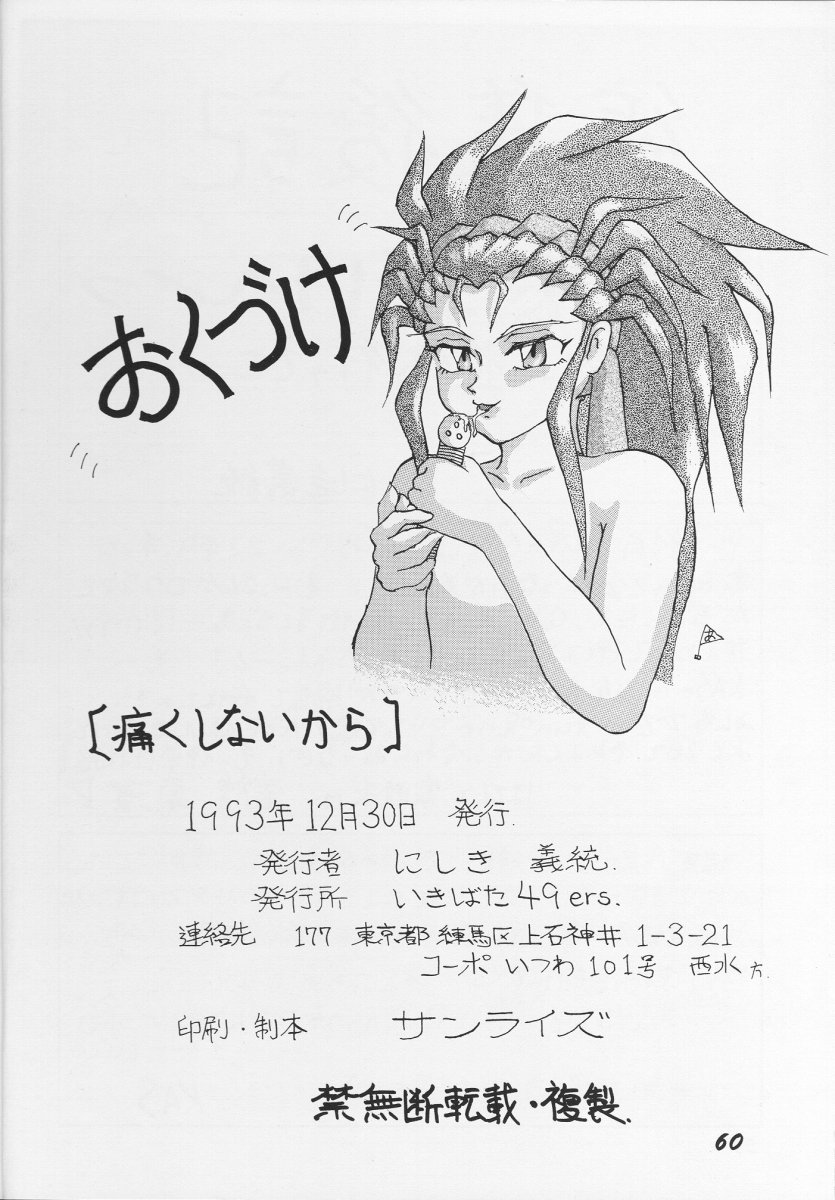 おくづけ
あ
[痛くしないから]
1993年12月30日 発行.
発行者 にしき 義統.
発行所 いきばた49ers.
連絡先 177 東京都練馬区上石神井 1-3-21
コーポ いつわ 101号 西水方.
印刷・製本 サンライズ
禁無断転載・複製.
60